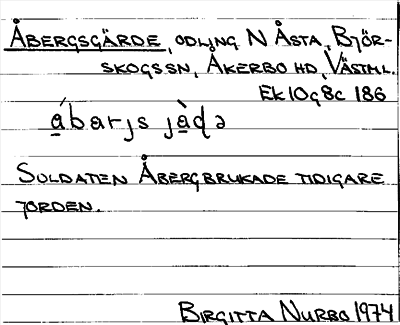 Åbergsgärde, odling N Åsta, Björ-
skogssn, Åkerbo hd, Västml.
Ek10g8c 186
ábarjs jàḍə
Soldaten Åberg brukade tidigare
jorden.
Birgitta Nurbo 1974